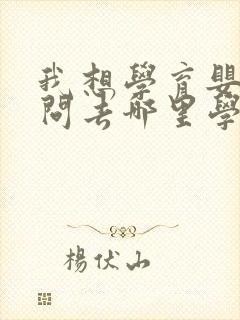 我想學育嬰
問去哪里學
楊伏山